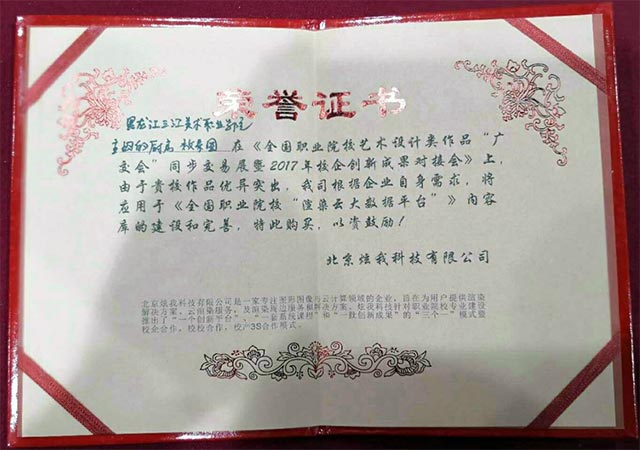 荣誉证书
黑龙江三江美术职业学院
在《全国职业院校艺术设计类作品“广
交会”同步交易展暨2017年校企创新成果对接会》上，
由于贵校作品优异突出，我司根据企业自身需求，将
应用于《全国职业院校“渲染云大数据平台”》内容
库的建设和完善，特此购买，以资鼓励！
北京炫我科技有限公司
北京炫我科技有限公司是一家专注图形图像与云计算领域的企业，旨在为用户提供渲染
解决方案、云渲染服务，及
推出了“一个创新平台”、“一套系统课程”和“一批创新成果”的“三个一”模式暨
校企合作，校校合作，校产3S合作模式。